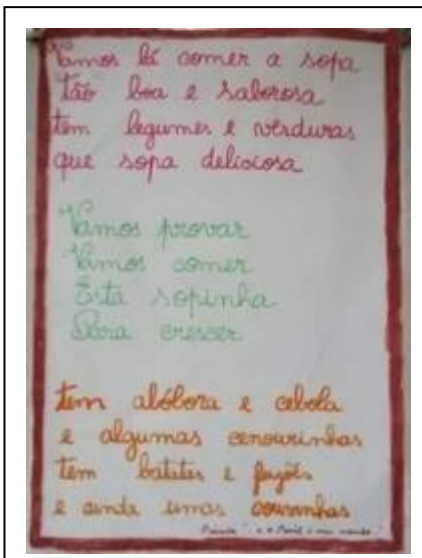 Vamos lá comer a sopa
tão boa e saborosa
tem legumes e verduras
que sopa deliciosa
Vamos provar
Vamos comer
Esta sopinha
Para crescer
tem abóbora e cebola
e algumas cenourinhas
tem batatas e feijões
e ainda umas couvinhas